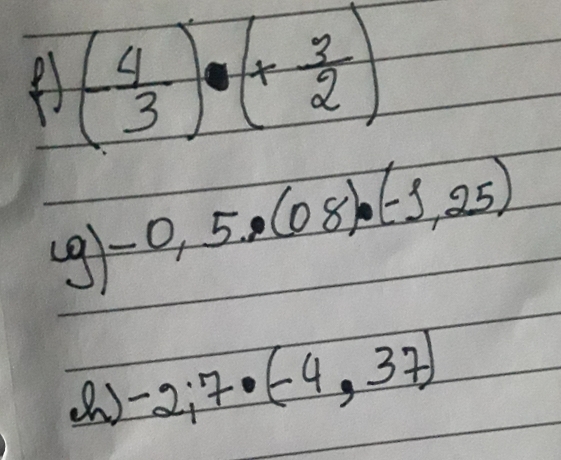 f) (4/3) • (+ 3/2)
g) -0,5.•(08)•(-1,25)
h) -2,7•(-4,37)